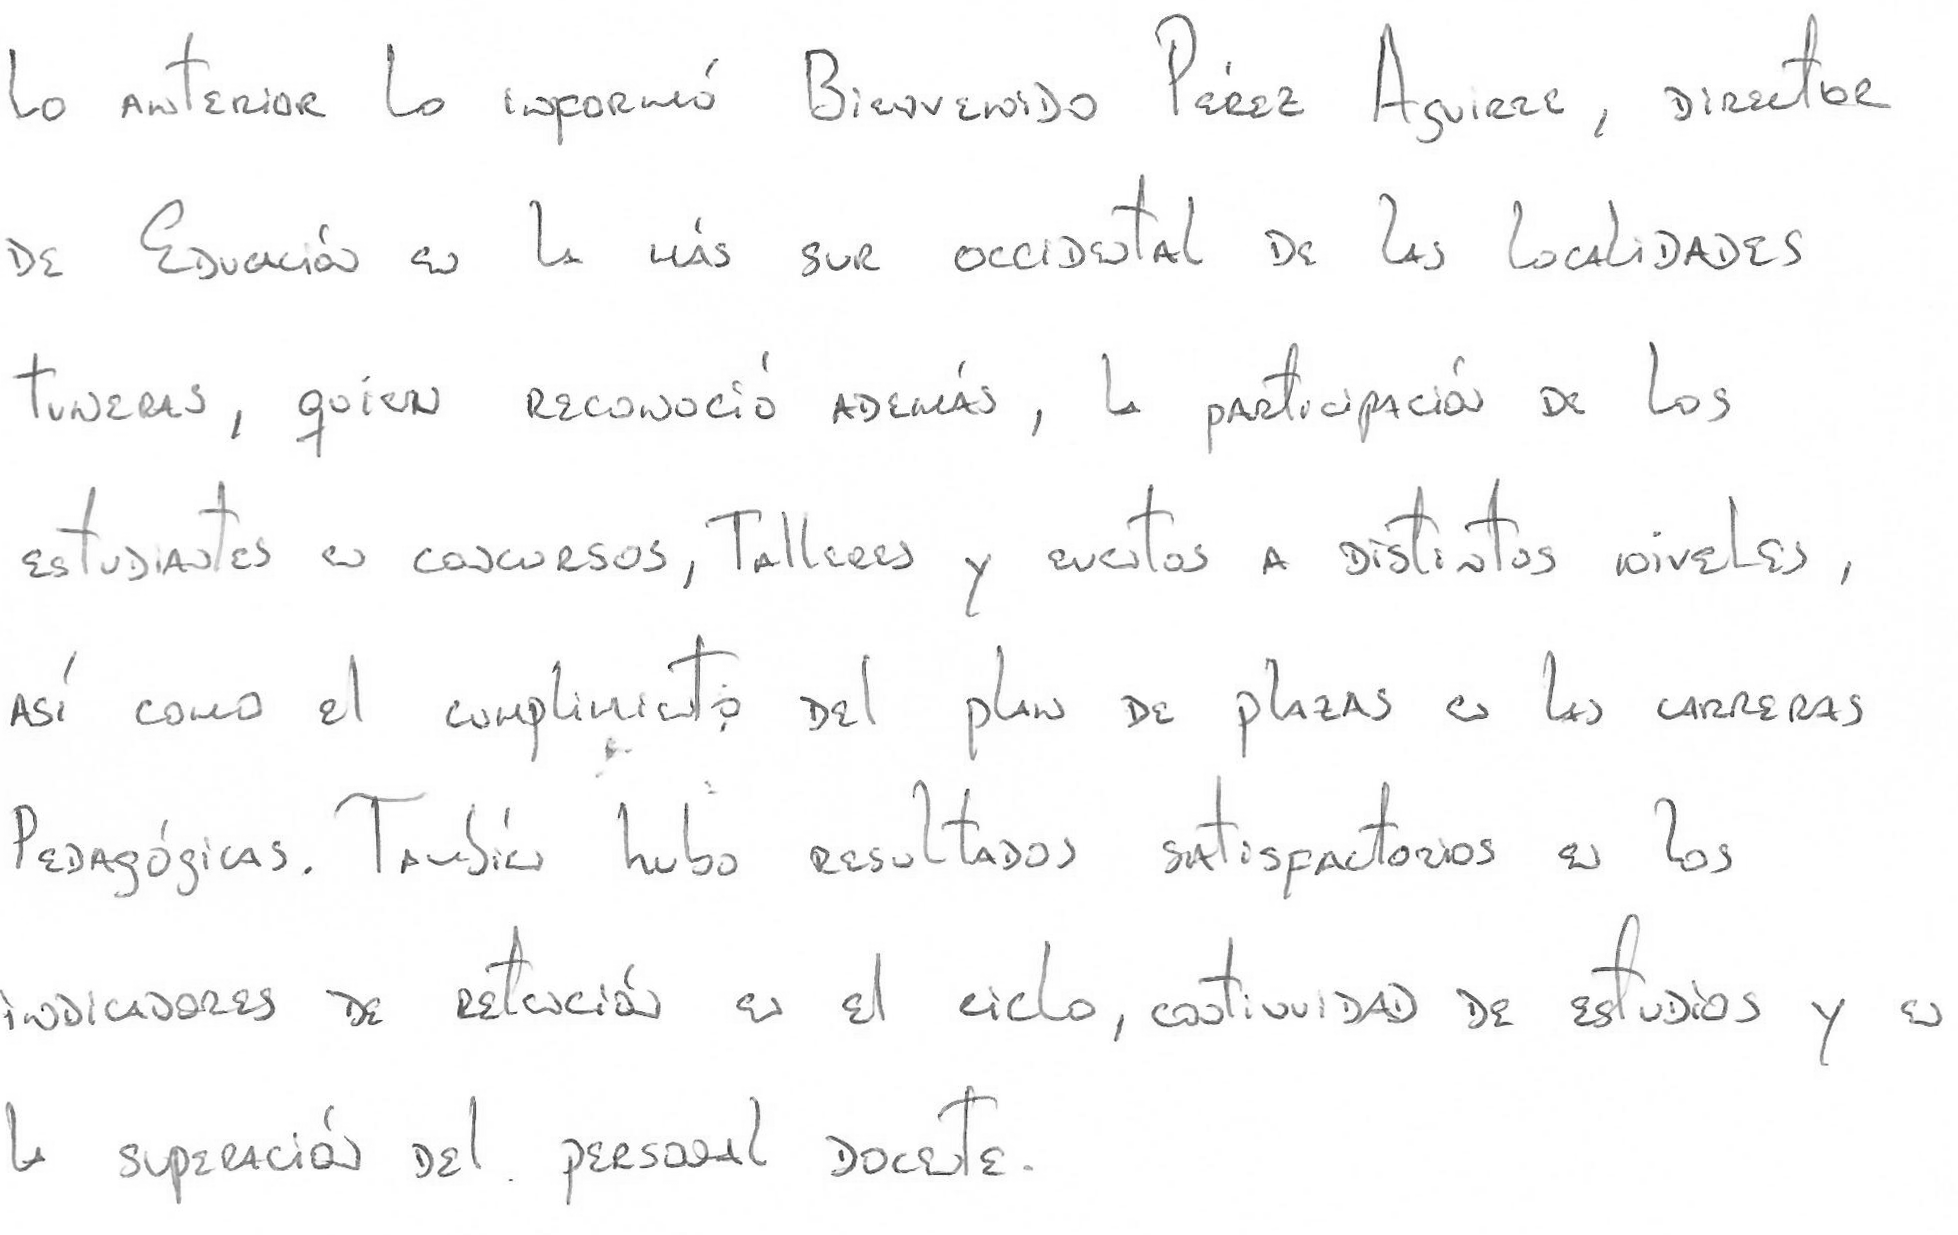 Lo anterior lo informó Bienvenido Pérez Aguirre, director
de Educación en la más sur occidental de las localidades
tuneras, quien reconoció además, la participación de los
estudiantes en concursos, Talleres y eventos a distintos niveles,
así como el cumplimiento del plan de plazas en las carreras
Pedagógicas. También hubo resultados satisfactorios en los
indicadores de retención en el ciclo, continuidad de estudios y en
la superación del personal docente.